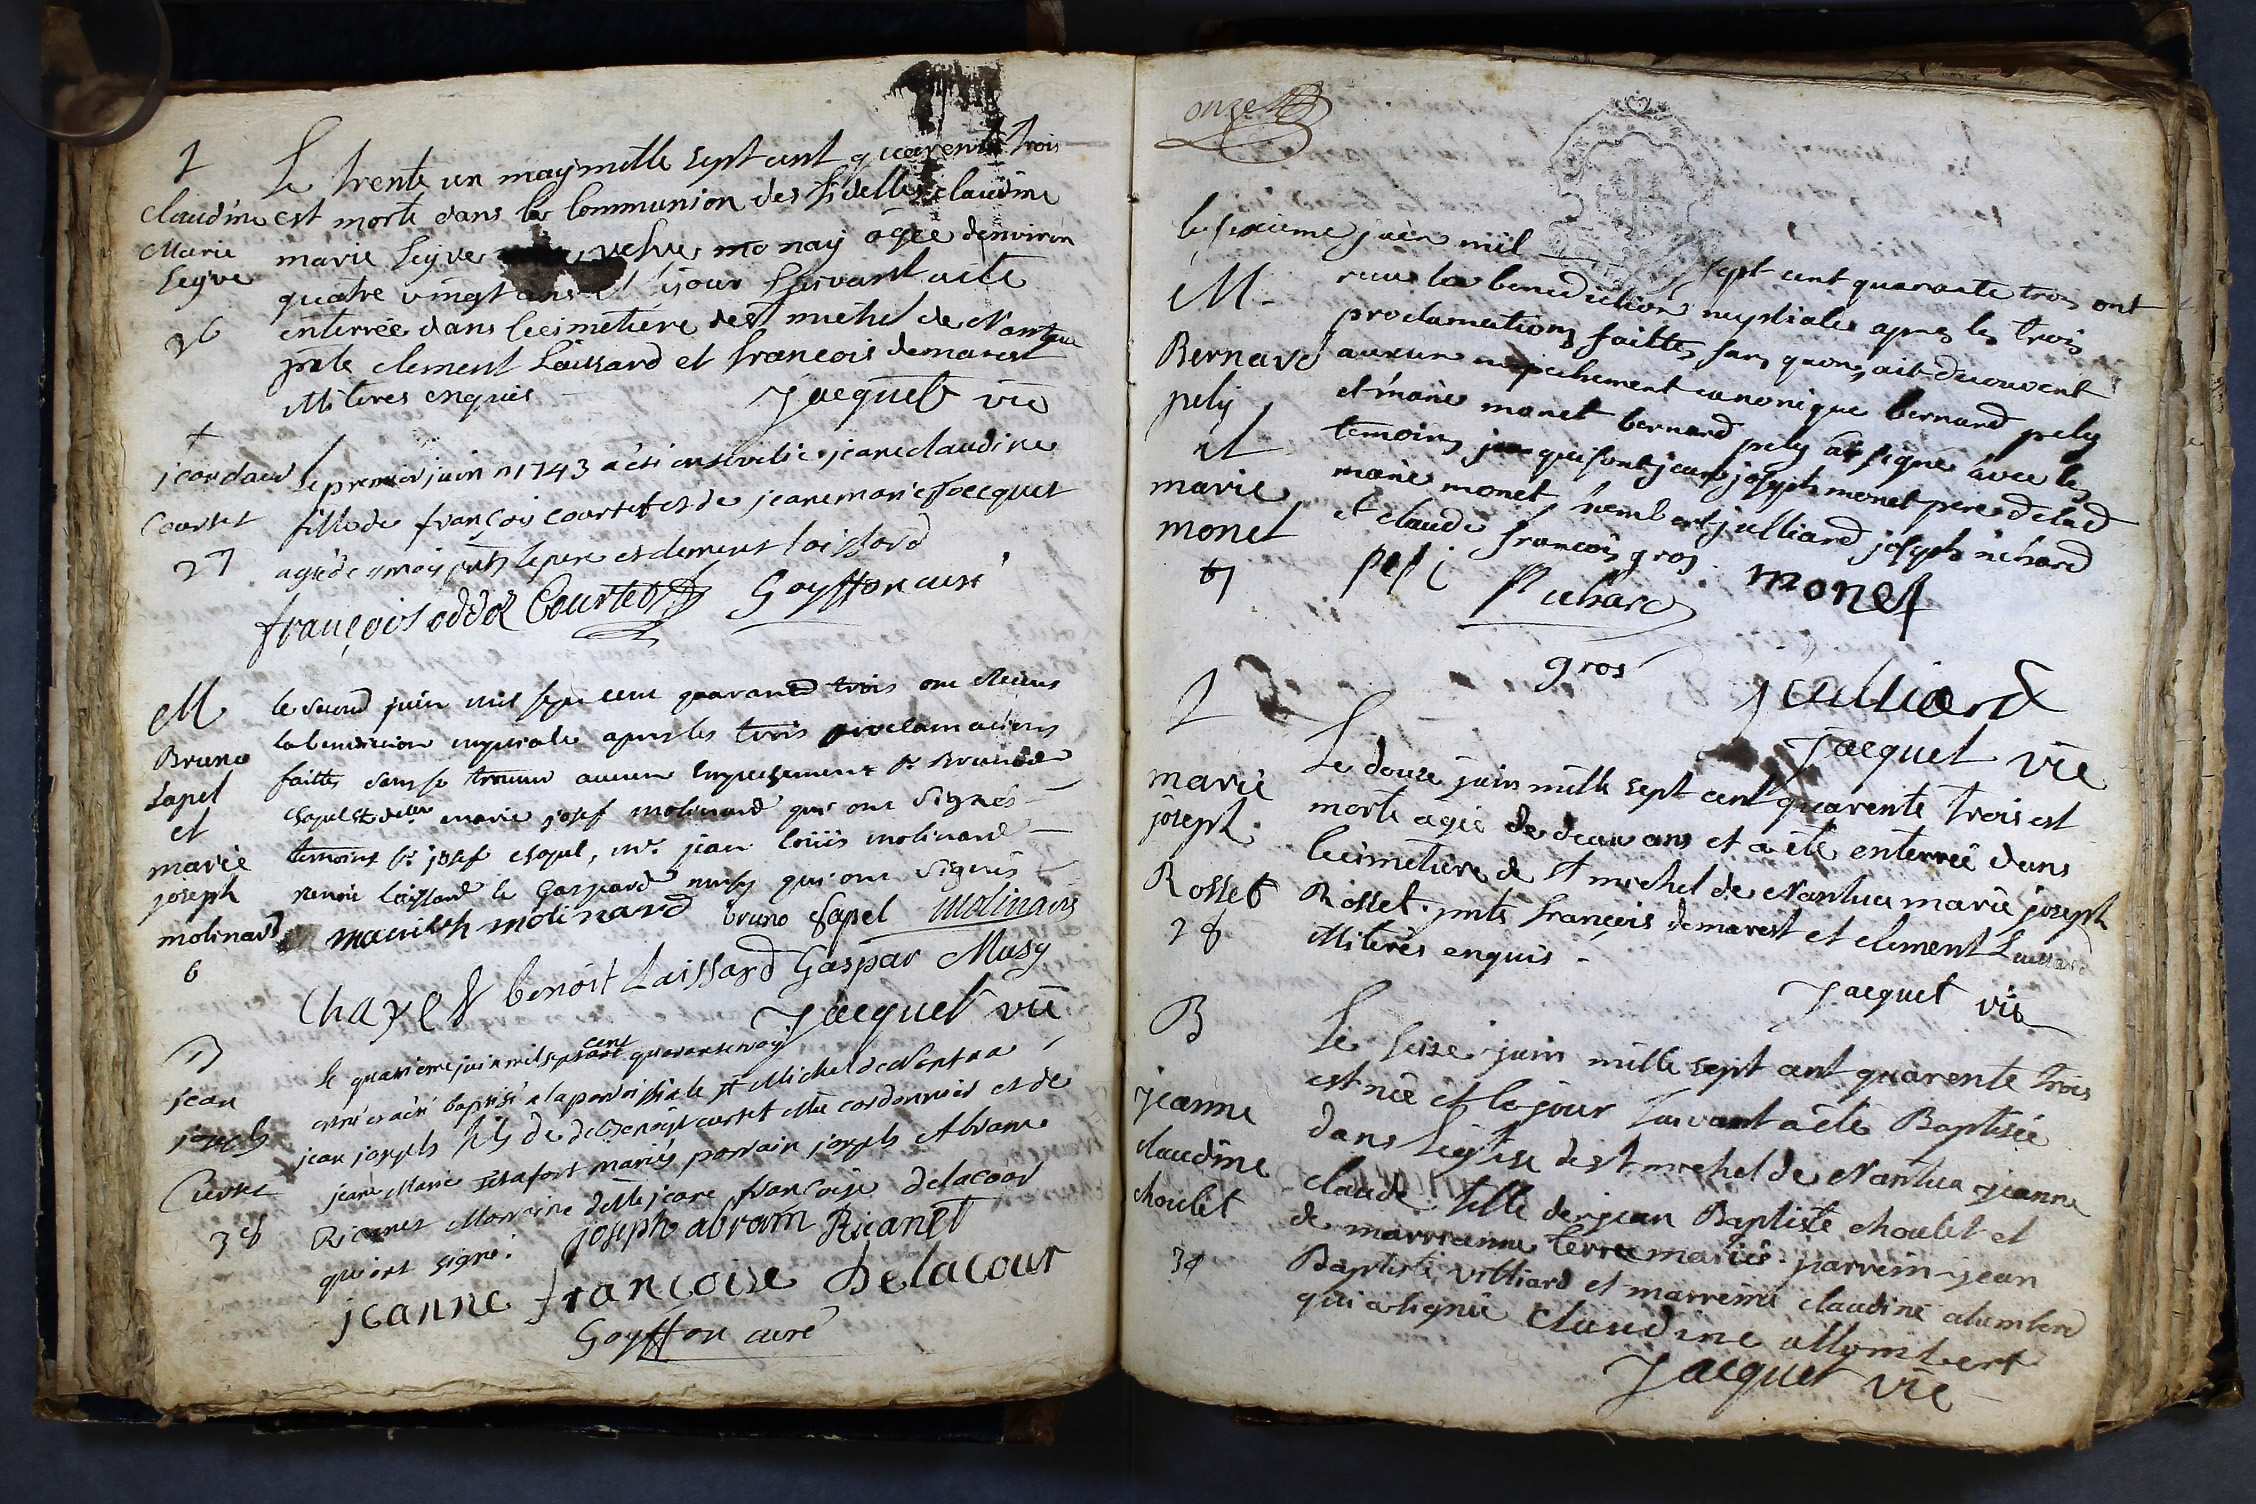 Le trente un may mille sept cent quarente trois
claudine est morte dans la Communion des fidelles claudine
Marie marie seyve vefve monay agée denviron
Seyve quatre vingt ans et le jour suivant a été
36 enterrée dans le cimetiere de st michel de Nantua
pnts clement Laissard et francois demarest
illiterés enquis Jacquet vic
le premier juin 1743 a été ensevelie jeane claudine
Courtet fille de françois courtet et de jeanemarie Jacquet
27 agée de mois pnts le pere et clement laissard
françois oddoz Courtet Goyffon curé
M le second juin mil sept cent quarante trois ont Receus
Bruno la benediction nuptiale apres les trois proclamations
Sapel faittes sans se trouver aucun Empechement Sr Bruno
et chapel et delle marie josef molinard qui ont signés
marie temoins Sr josef chapel, mr. jean louis molinard
joseph laissard le Gaspard musy qui ont signés
molinard molinard bruno Sapel Molinard
6
Chapel benoit Laissard Gaspar Musy
Jacquet vic
B
jean le quatrieme juin mil sept cent quarante trois
joseph est né et a été baptisé a la paroissiale St Michel de Nantua
Curtet jean joseph fils de de Benoist curtet Me cordonnier et de
38 jeane Marie mariés parrain joseph Abram
Ricanet Marraine delle jeane françoise delacour
qui ont signé. joseph abram Ricanet
jeanne francoise Delacour
Goyffon curé
onze
le sixieme juin mil sept cent quarante trois ont
M. receu la benediction nuptiale apres les trois
proclamations faittes sans quon, ait decouvert
Bernard aucun empechement canonique bernard pely
pely et marie monet bernard pely a signé avec les
et temoins qui sont jean joseph monet pere de lad
marie marie monet, humbert julliard joseph richard
monet et claude françois gros.
7 peli Richard monet
gros julliard
Jacquet vic
Le douze juin mille sept cent quarente trois est
marie morte agée de deux ans et a été enterrée dans
joseph le cimetiere de st michel de Nantua marie joseph
Rosset Rosset. pnts francois demarest et clement Laissard
28 illiterés enquis.
Jacquet vic
B Le seize juin mille sept cent quarente trois
est née et le jour suivant a été Baptisée
jeanne dans leglise de st michel de Nantua jeanne
claudine claude fille de jean Baptiste choulet et
choulet de marrianne mariés. parrein jean
39 Baptiste villiard et marreine claudine alumbert
qui a signée Claudine allombert
Jacquet vic